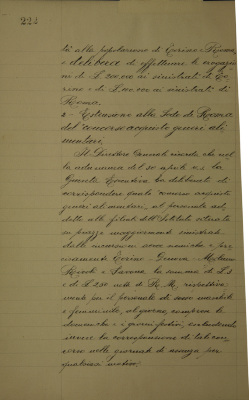 224
tà alla popolazione di Torino e Roma,
e delibera di effettuare le erogazio
ni di £ 200.000 ai sinistrati di To
rino e di £ 100.000 ai sinistrati di
Roma.
2 - Estensione alla Sede di Roma
del concorso acquisto generi ali
mentari.
Il Direttore Generale ricorda che nel
la adunanza del 30 aprile u.s. la
Giunta Esecutiva ha deliberato di
corrispondere quale concorso acquisto
generi alimentari, al personale ad
detto alle filiali dell'Istituto
su piazze maggiormente sinistrate
dalle incursioni aeree nemiche e pre
cisamente Torino - Genova - Milano
e Savona, la somma di £ 3
e di £ 2.50 nette di R. M. rispettiva
mente per il personale di sesso maschile
e femminile, al giorno, comprese le
domeniche e i giorni festivi, escludendo
invece la corresponsione di tale con
corso nelle giornate di assenza per
qualsiasi motivo.